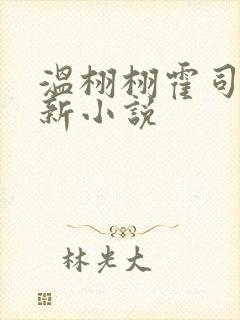 温栩栩霍司
新小说
林光大